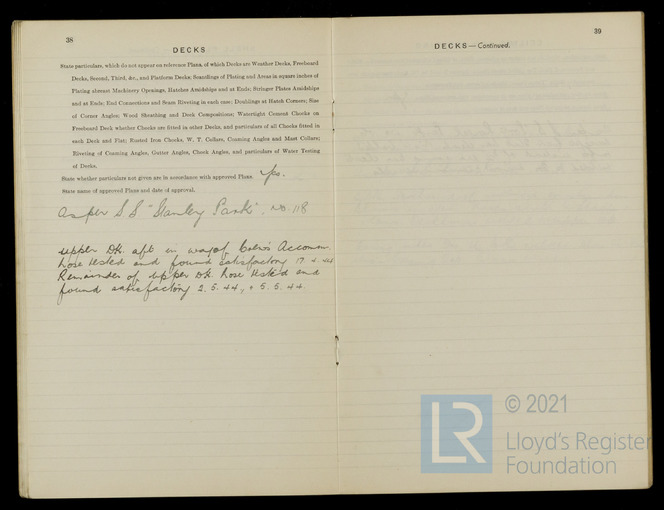 38
DECKS
State particulars, which do not appear on relevant Plans, of which Decks are Weather Decks, Freeboard
Decks, Second, Third, &c., and Platform Decks; Scantlings of Plating and Areas in square inches of
Plating abreast Machinery Openings, Hatches Amidships and at Ends; Stringer Plates Amidships
and at Ends; End Connections and Seam Riveting in each case; Doublings at Hatch Corners; Size
of Corner Angles; Wood Sheathing and Deck Compositions; Watertight Cement Chocks on
Freeboard Deck whether Chocks are fitted in other Decks, and particulars of all Chocks fitted in
each Deck and Flat; Rusted Iron Chocks, W. T. Collars, Coaming Angles and Mast Collars;
Riveting of Coaming Angles, Gutter Angles, Chock Angles, and particulars of Water Testing
of Decks.
State whether particulars not given are in accordance with approved Plans. Yes.
State name of approved Plans and date of approval.
As per S S "Stanley Park". No. 118
Upper Dk. aft in way of Crew's Accomm.
hose tested and found satisfactory 17.4.44
Remainder of Upper Dk. hose tested and
found satisfactory 2.5.44, & 5.5.44.
39
DECKS—Continued.
LR
© 2021
Lloyd's Register
Foundation